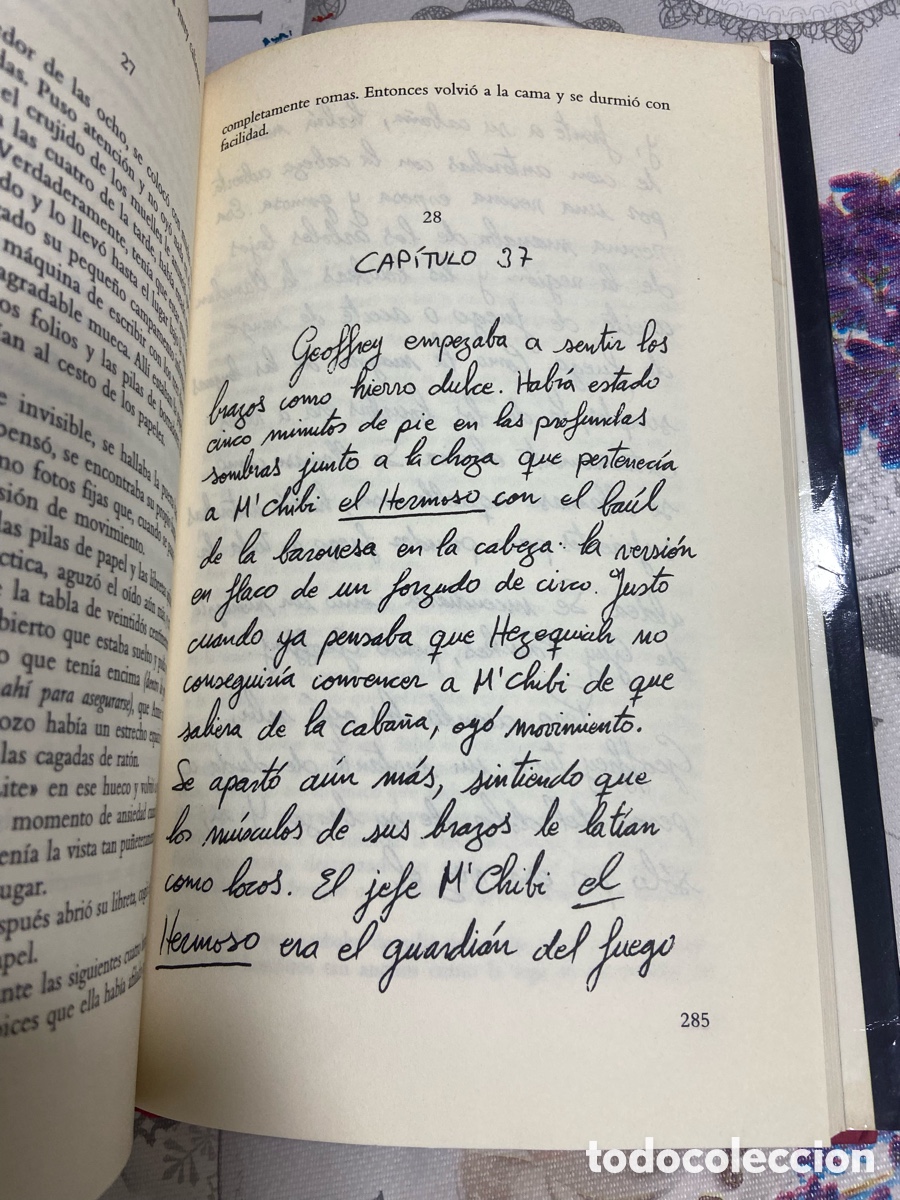 27
dor de las ocho, se colocó con
das. Puso atención y no oyó nada
el crujido de los muelles
a las cuatro de la tarde, había
Verdaderamente, tenía que estar
do y lo llevó hasta el lugar
ado su pequeño campamento
máquina de escribir con los
agradable mueca. Allí estaban
os folios y las pilas de
ían al cesto de los papeles.
e invisible, se hallaba la puerta
pensó, se encontraba su propio
no fotos fijas que, cuando se
sión de movimiento.
las pilas de papel y las libretas
ctica, aguzó el oído aún más
e la tabla de veintidós centímetros
bierto que estaba suelto y
o que tenía encima
ahí para asegurarse), que
ozo había un estrecho
las cagadas de ratón.
ite» en ese hueco y volvió a
momento de ansiedad
enía la vista tan
ugar.
spués abrió su libreta,
pel.
nte las siguientes cuatro
ices que ella había
completamente romas. Entonces volvió a la cama y se durmió con
facilidad.
28
CAPÍTULO 37
Geoffrey empezaba a sentir los
brazos como hierro dulce. Había estado
cinco minutos de pie en las profundas
sombras junto a la choza que pertenecía
a M'Chibi el Hermoso con el baúl
de la baronesa en la cabeza: la versión
en flaco de un forzudo de circo. Justo
cuando ya pensaba que Hezequiah no
conseguiría convencer a M'Chibi de que
saliera de la cabaña, oyó movimiento.
Se apartó aún más, sintiendo que
los músculos de sus brazos le latían
como locos. El jefe M'Chibi el
Hermoso era el guardián del fuego
285
todocoleccion